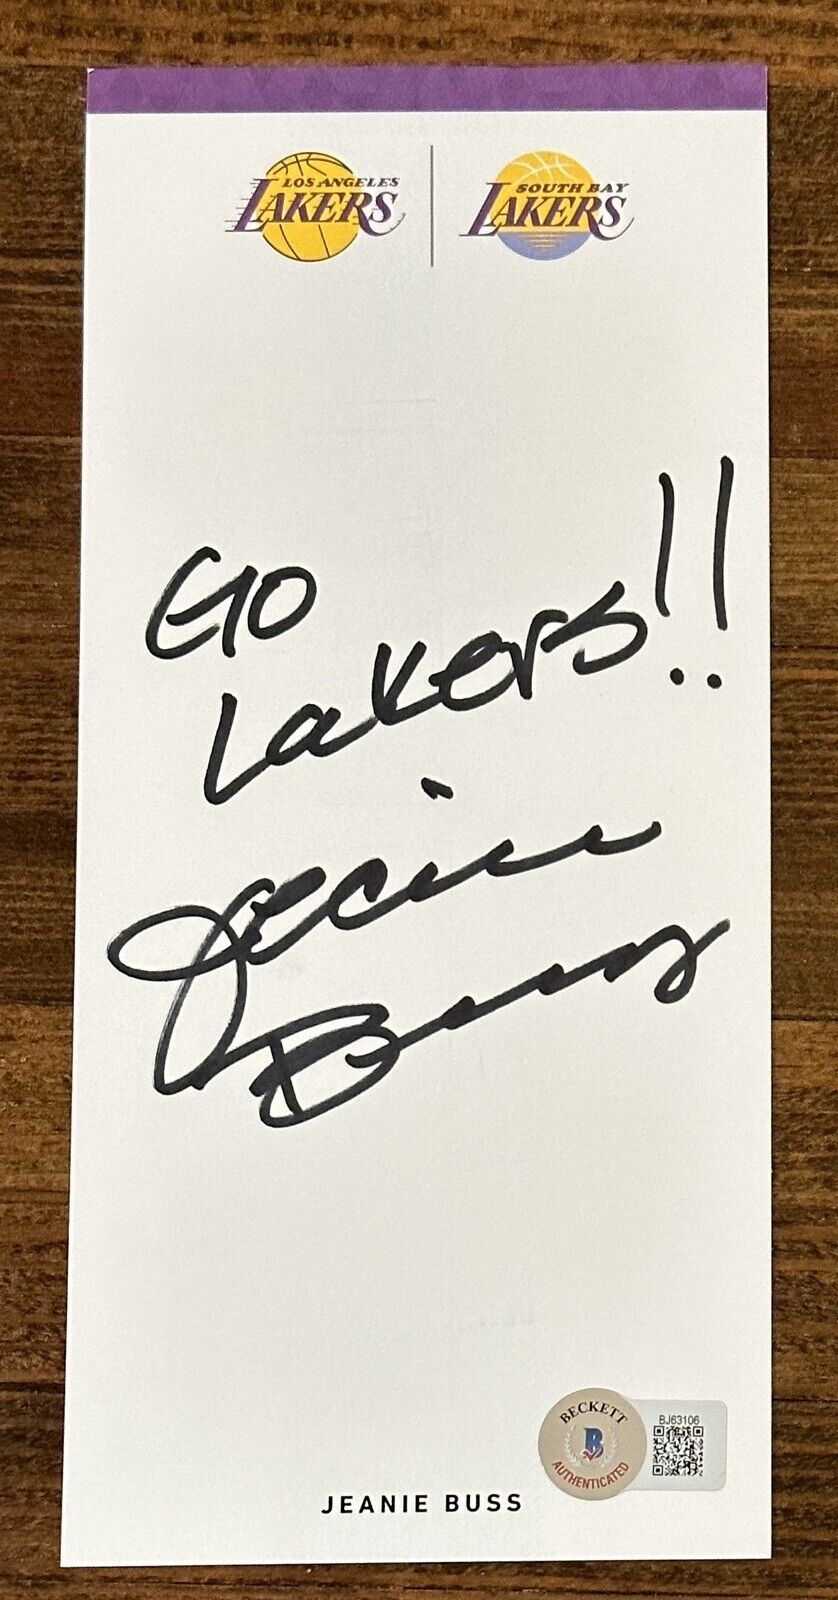 LOS ANGELES
LAKERS
SOUTH BAY
LAKERS
Go
Lakers!!
Jeanie
Buss
BECKETT
B
AUTHENTICATED
BJ63106
JEANIE BUSS